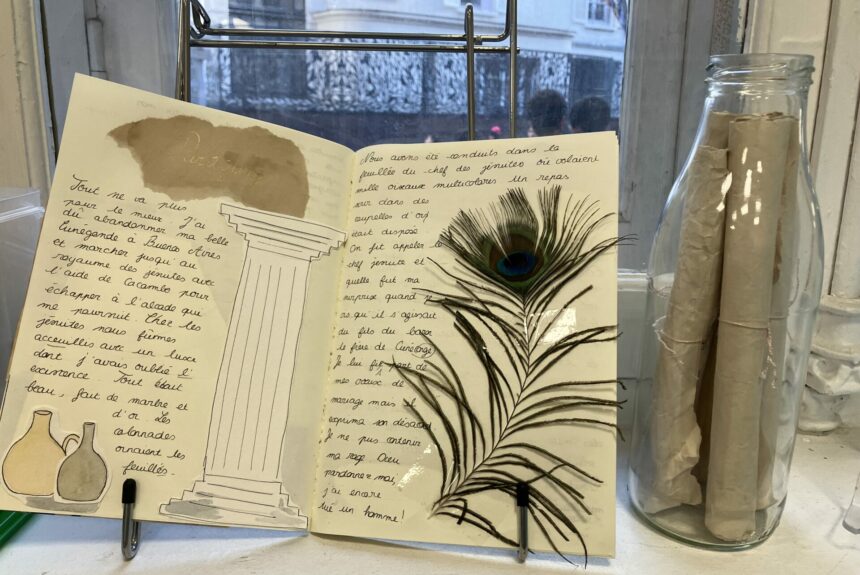 Tout ne va plus
pour le mieux. J'ai
dû abandonner ma belle
Cunégande à Buenos Aires
et marcher jusqu'au
royaume des jésuites avec
l'aide de Cacambo pour
échapper à l'alcade qui
me poursuit. Chez les
jésuites nous fûmes
acceuillis avec un luxe
dont j'avais oublié l'
existence. Tout était
beau, fait de marbre et
d'or. Les
colonnades
ornaient les
feuillés.
Nous avons été conduits dans la
feuillée du chef des jésuites où volaient
mille oiseaux multicolores. Un repas
sur dans des
coupelles d'or
était disposé
On fit appeler le
chef jésuite et
quelle fut ma
surprise quand je
qu'il s'agissait
du fils du baron
le frère de Cunégonde
Je lui fit part de
mes voeux de
mariage mais il
exprima son désaccord
Je ne pus contenir
ma rage. Dieu
pardonnez moi,
j'ai encore
tué un homme!